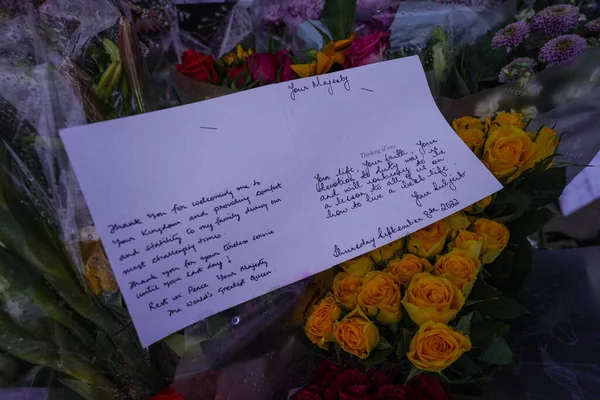 Your Majesty
Thank You for welcoming me to
Your Kingdom and providing comfort
and stability to my family during our
most challenging time.
Thank You for your tireless service
until your last day!
Rest in Peace Your Majesty
The World's Greatest Queen
Thinking of you
Your life, Your faith, Your
devotion to duty was is
and will continue to be
a lesson to all of us on
how to live a best life.
Your Subject
Thursday September 8th 2022